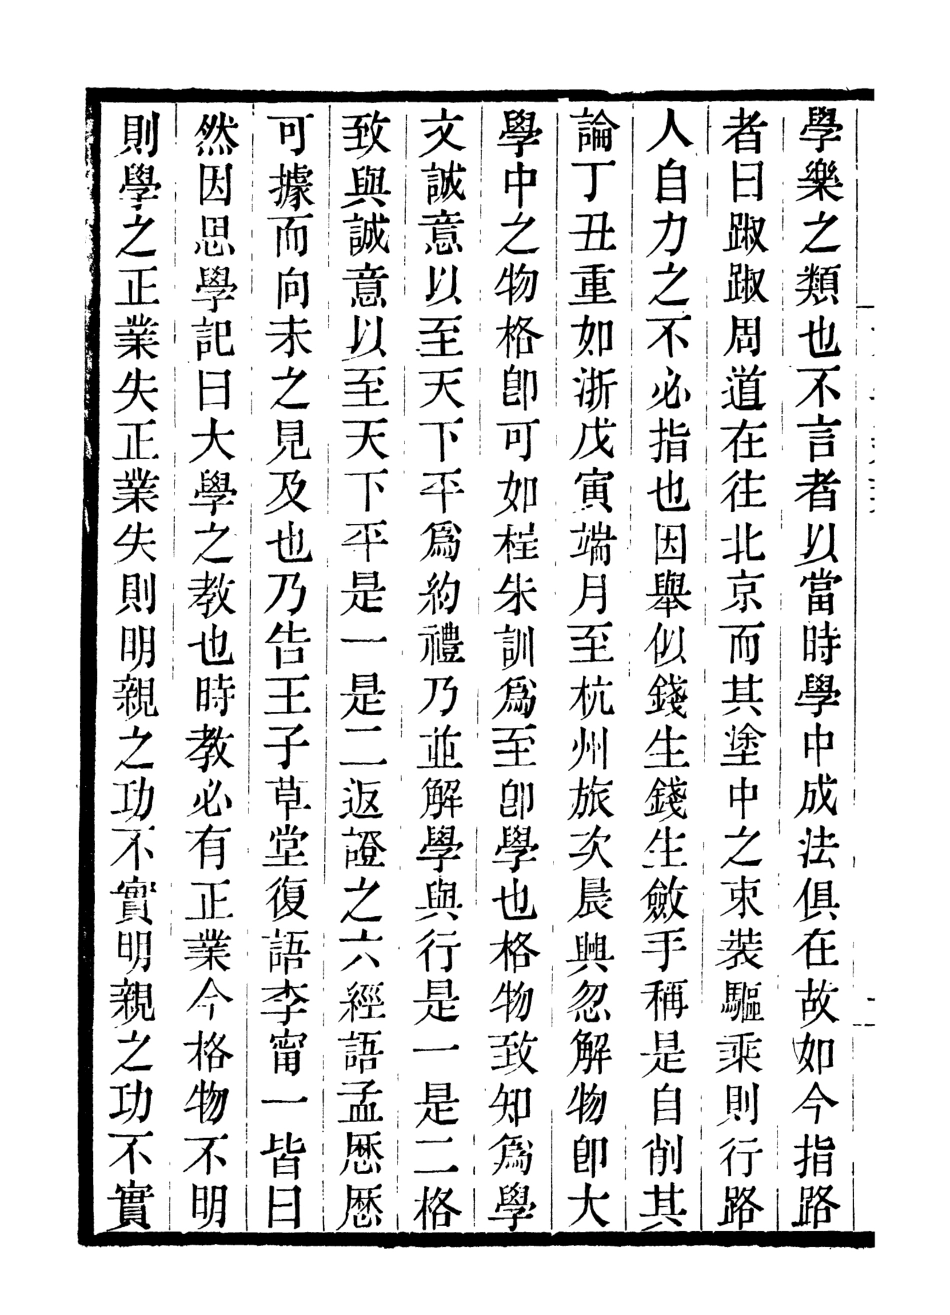 學樂之類也不言者以當時學中成法俱在故如今指路
者曰踧踧周道在往北京而其塗中之束裝驅乘則行路
人自力之不必指也因舉似錢生錢生斂手稱是自削其
論丁丑重如浙戊寅端月至杭州旅次晨興忽解物卽大
學中之物格卽可如程朱訓爲至卽學也格物致知爲學
文誠意以至天下平爲約禮乃並解學與行是一是二格
致與誠意以至天下平是一是二返證之六經語孟厯厯
可據而向未之見及也乃告王子草堂復語李甯一皆曰
然因思學記曰大學之教也時教必有正業今格物不明
則學之正業失正業失則明親之功不實明親之功不實